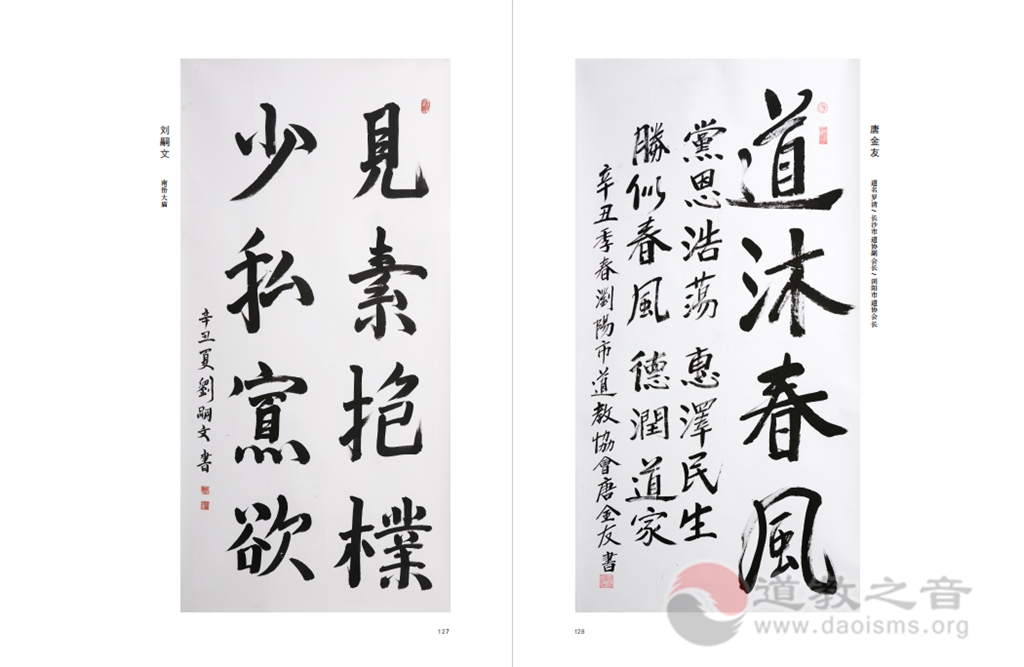 刘嗣文
南岳大庙
見素抱樸
少私寡欲
辛丑夏劉嗣文書
127
唐金友
道名罗清/长沙市道协副会长/浏阳市道协会长
道沐春風
黨恩浩蕩 惠澤民生
勝似春風 德潤道家
辛丑季春瀏陽市道教協會唐金友書
128
道教之音
www.daoisms.org